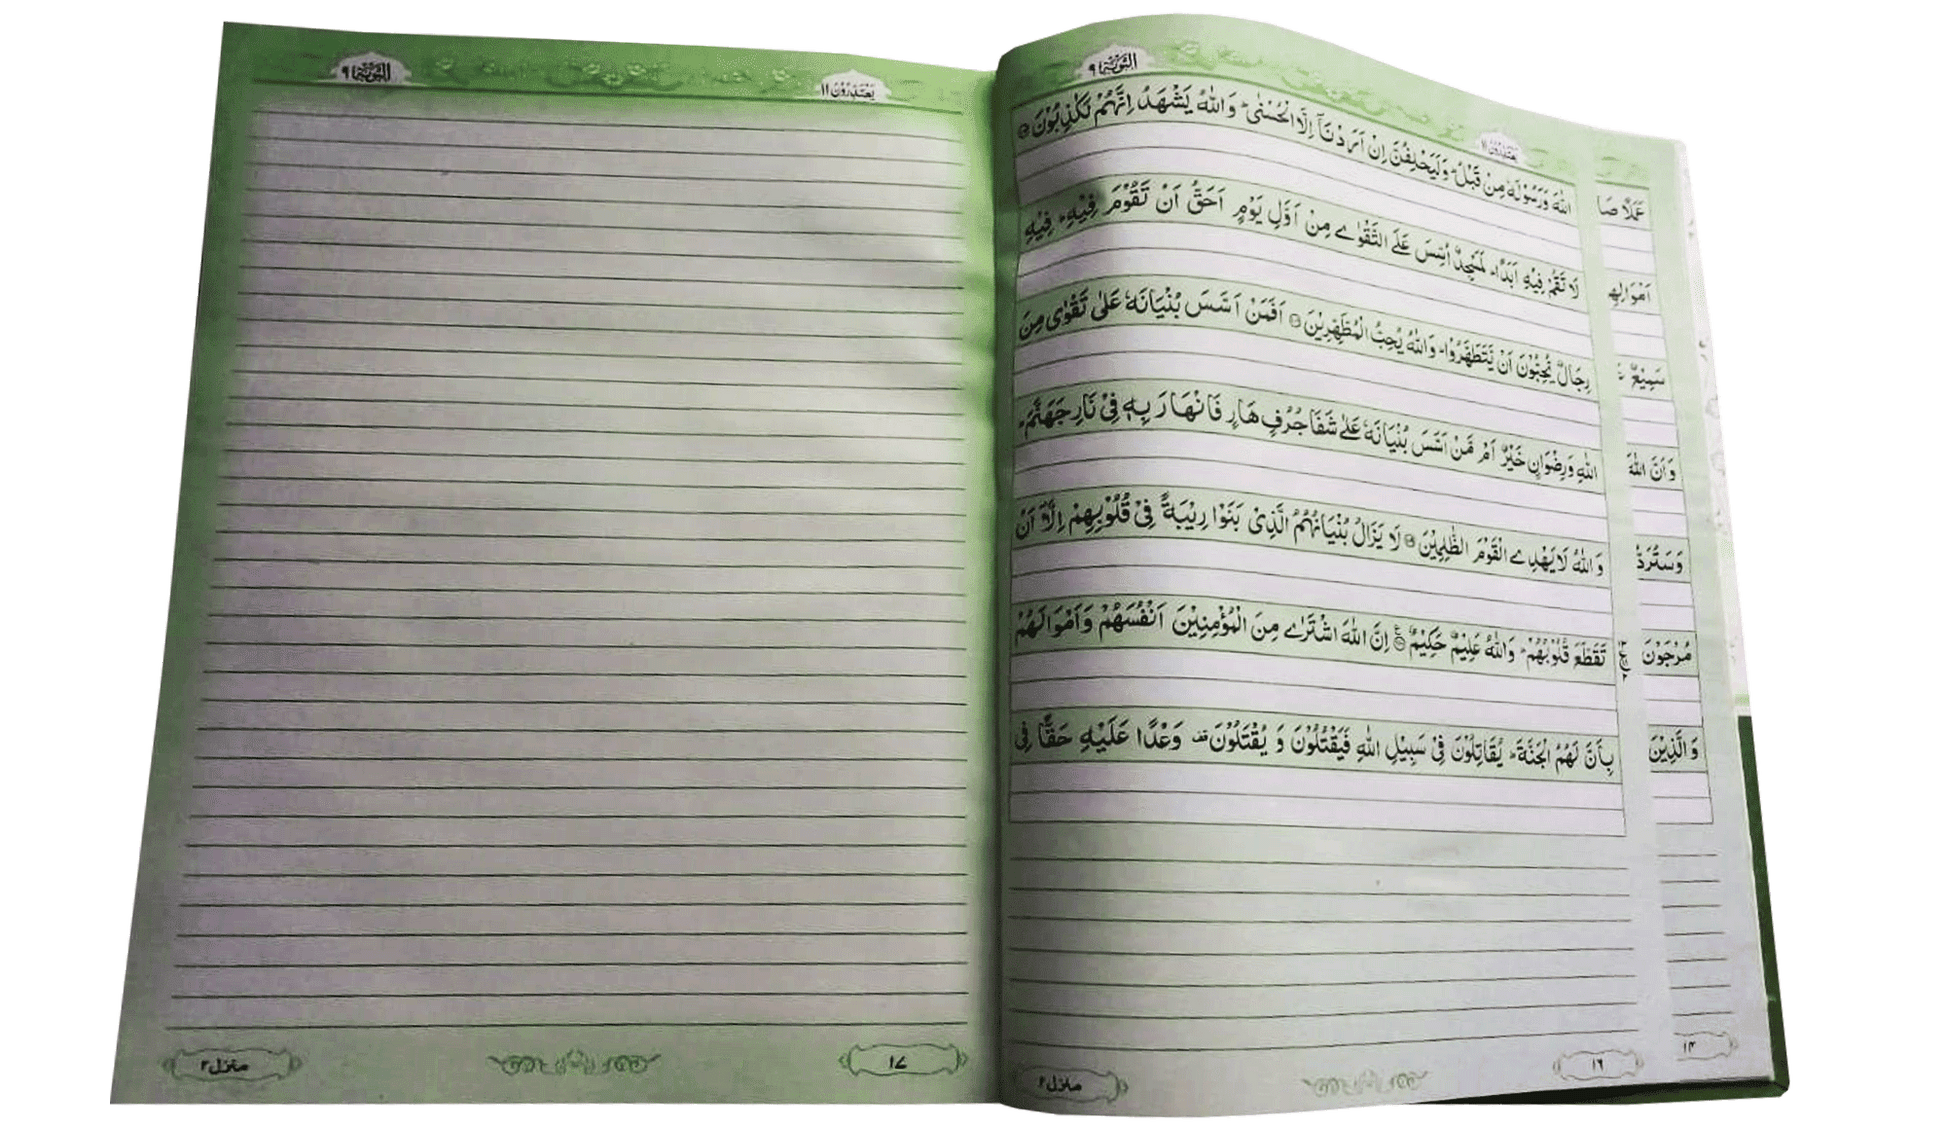 التوبة ٩
يعتذرون ١١
اللّٰهَ وَرَسُوْلَهٗ مِنْ قَبْلُ ؕ وَلَيَحْلِفُنَّ اِنْ اَرَدْنَاۤ اِلَّا الْحُسْنٰى ؕ وَاللّٰهُ يَشْهَدُ اِنَّهُمْ لَكٰذِبُوْنَ ۝
لَا تَقُمْ فِيْهِ اَبَدًا ؕ لَمَسْجِدٌ اُسِّسَ عَلَى التَّقْوٰى مِنْ اَوَّلِ يَوْمٍ اَحَقُّ اَنْ تَقُوْمَ فِيْهِ ؕ فِيْهِ
رِجَالٌ يُّحِبُّوْنَ اَنْ يَّتَطَهَّرُوْا ؕ وَاللّٰهُ يُحِبُّ الْمُطَّهِّرِيْنَ ۝ اَفَمَنْ اَسَّسَ بُنْيَانَهٗ عَلٰى تَقْوٰى مِنَ
اللّٰهِ وَرِضْوَانٍ خَيْرٌ اَمْ مَّنْ اَسَّسَ بُنْيَانَهٗ عَلٰى شَفَا جُرُفٍ هَارٍ فَانْهَارَ بِهٖ فِيْ نَارِ جَهَنَّمَ ؕ
وَاللّٰهُ لَا يَهْدِى الْقَوْمَ الظّٰلِمِيْنَ ۝ لَا يَزَالُ بُنْيَانُهُمُ الَّذِيْ بَنَوْا رِيْبَةً فِيْ قُلُوْبِهِمْ اِلَّاۤ اَنْ
تَقَطَّعَ قُلُوْبُهُمْ ؕ وَاللّٰهُ عَلِيْمٌ حَكِيْمٌ ۝ اِنَّ اللّٰهَ اشْتَرٰى مِنَ الْمُؤْمِنِيْنَ اَنْفُسَهُمْ وَاَمْوَالَهُمْ
بِاَنَّ لَهُمُ الْجَنَّةَ ؕ يُقَاتِلُوْنَ فِيْ سَبِيْلِ اللّٰهِ فَيَقْتُلُوْنَ وَ يُقْتَلُوْنَ وَعْدًا عَلَيْهِ حَقًّا فِى
١٦
منزل ٢
عَمَلًا صَا
اَمْوَالِهِ
سَمِيْعٌ
وَاَنَّ اللّٰهَ
وَسَتُرَدُّ
مُرْجَوْنَ
وَالَّذِيْنَ
١٤
يعتذرون ١١
التوبة ٩
١٧
منزل ٢